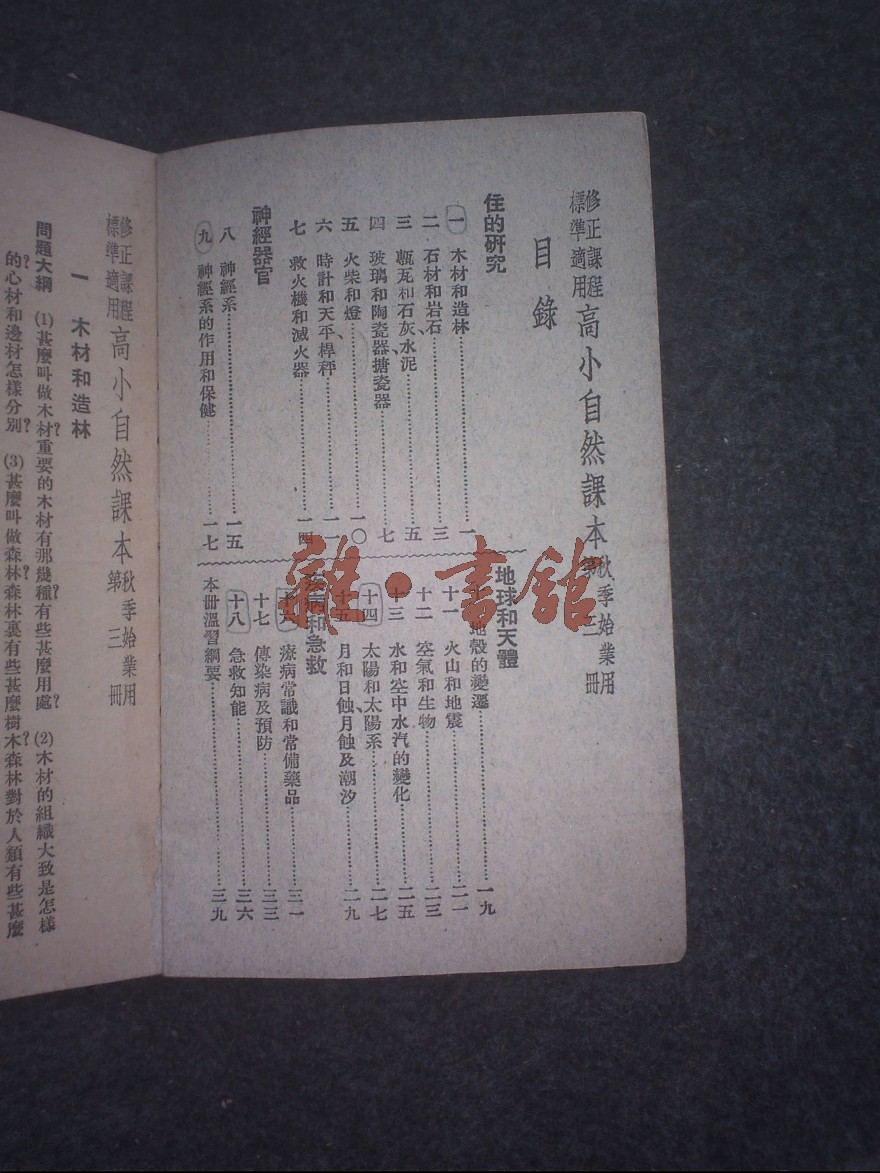 修正課程
標準適用
高小自然課本
秋季始業用
第三冊
目錄
住的研究
一 木材和造林……一
二 石材和岩石……三
三 甎瓦和石灰、水泥……五
四 玻璃和陶瓷器、搪瓷器……七
五 火柴和燈……一〇
六 時計和天平、桿秤……一一
七 救火機和滅火器……一四
神經器官
八 神經系……一五
九 神經系的作用和保健……一七
地球和天體
地殼的變遷……一九
十一 火山和地震……二一
十二 空氣和生物……二三
十三 水和空中水汽的變化……二五
十四 太陽和太陽系……二七
十五 月和日蝕、月蝕及潮汐……二九
病和急救
十六 療病常識和常備藥品……三一
十七 傳染病及預防……三三
十八 急救知能……三六
本冊溫習綱要……三九
雜·書館
修正課程
標準適用
高小自然課本
秋季始業用
第三冊
一 木材和造林
問題大綱 (1)甚麼叫做木材?重要的木材有那幾種?有些甚麼用處? (2)木材的組織大致是怎樣
的?心材和邊材怎樣分別? (3)甚麼叫做森林?森林裏有些甚麼樹木?森林對於人類有些甚麼